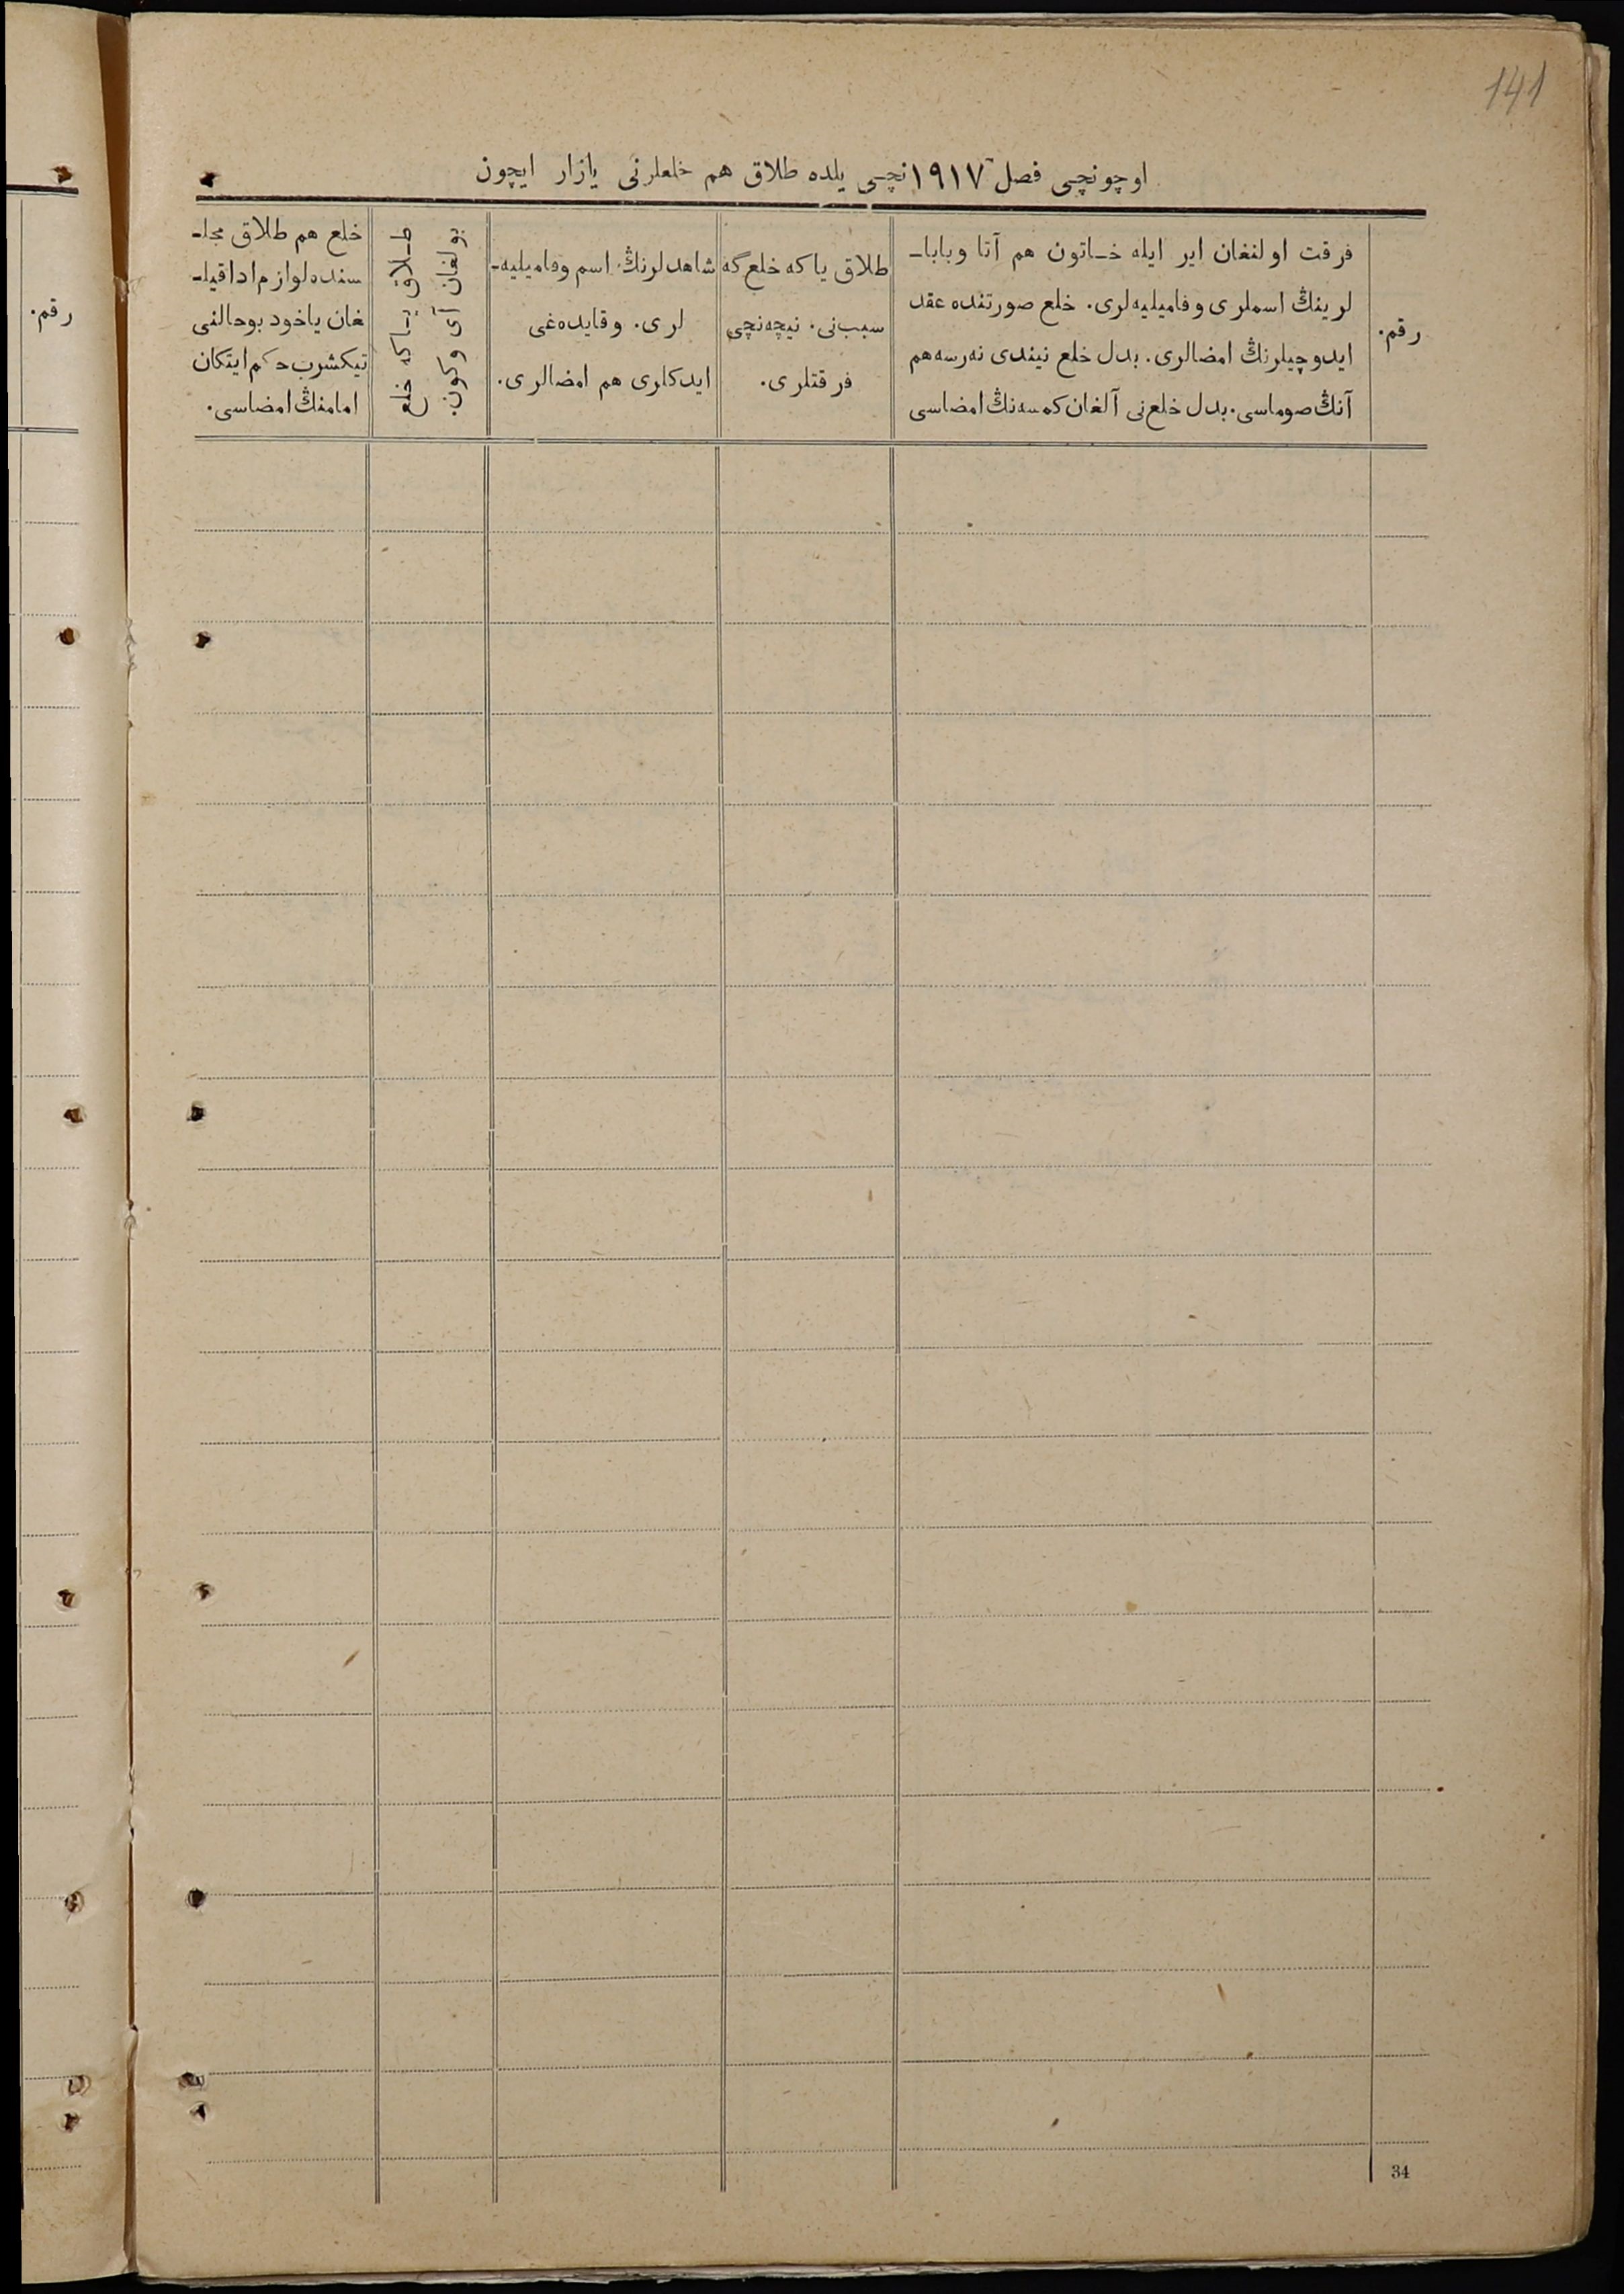 141
اوچونچی فصل ۱۹۱۷ نچی یلده طلاق هم خلعلرنی یازار ایچون
رقم.
فرقت اولنغان ایر ایله خـاتون هم آتا وبابا۔
لرینڭ اسملری وفامیلیه‌لری. خلع صورتنده عقد
ایدوچیلرنڭ امضالری. بدل خلع نیندی نه‌رسه هم
آنڭ صوماسی. بدل خلع‌نی آلغان کمسه‌نڭ امضاسی
طلاق یاکه خلع‌گه
سبب‌نی. نیچه‌نچی
فرقتلری.
شاهدلرنڭ اسم وفامیلیه۔
لری. وقایده‌غی
ایدکلری هم امضالری.
طـلاق یـاکه خلع
بولغان آی وکون.
خلع هم طلاق مجلـ
سنده‌لوازم ادا قیلـ
غان یاخود بوحالنی
تیکشرب حکم ایتکان
امامنڭ امضاسی.
رقم.
34